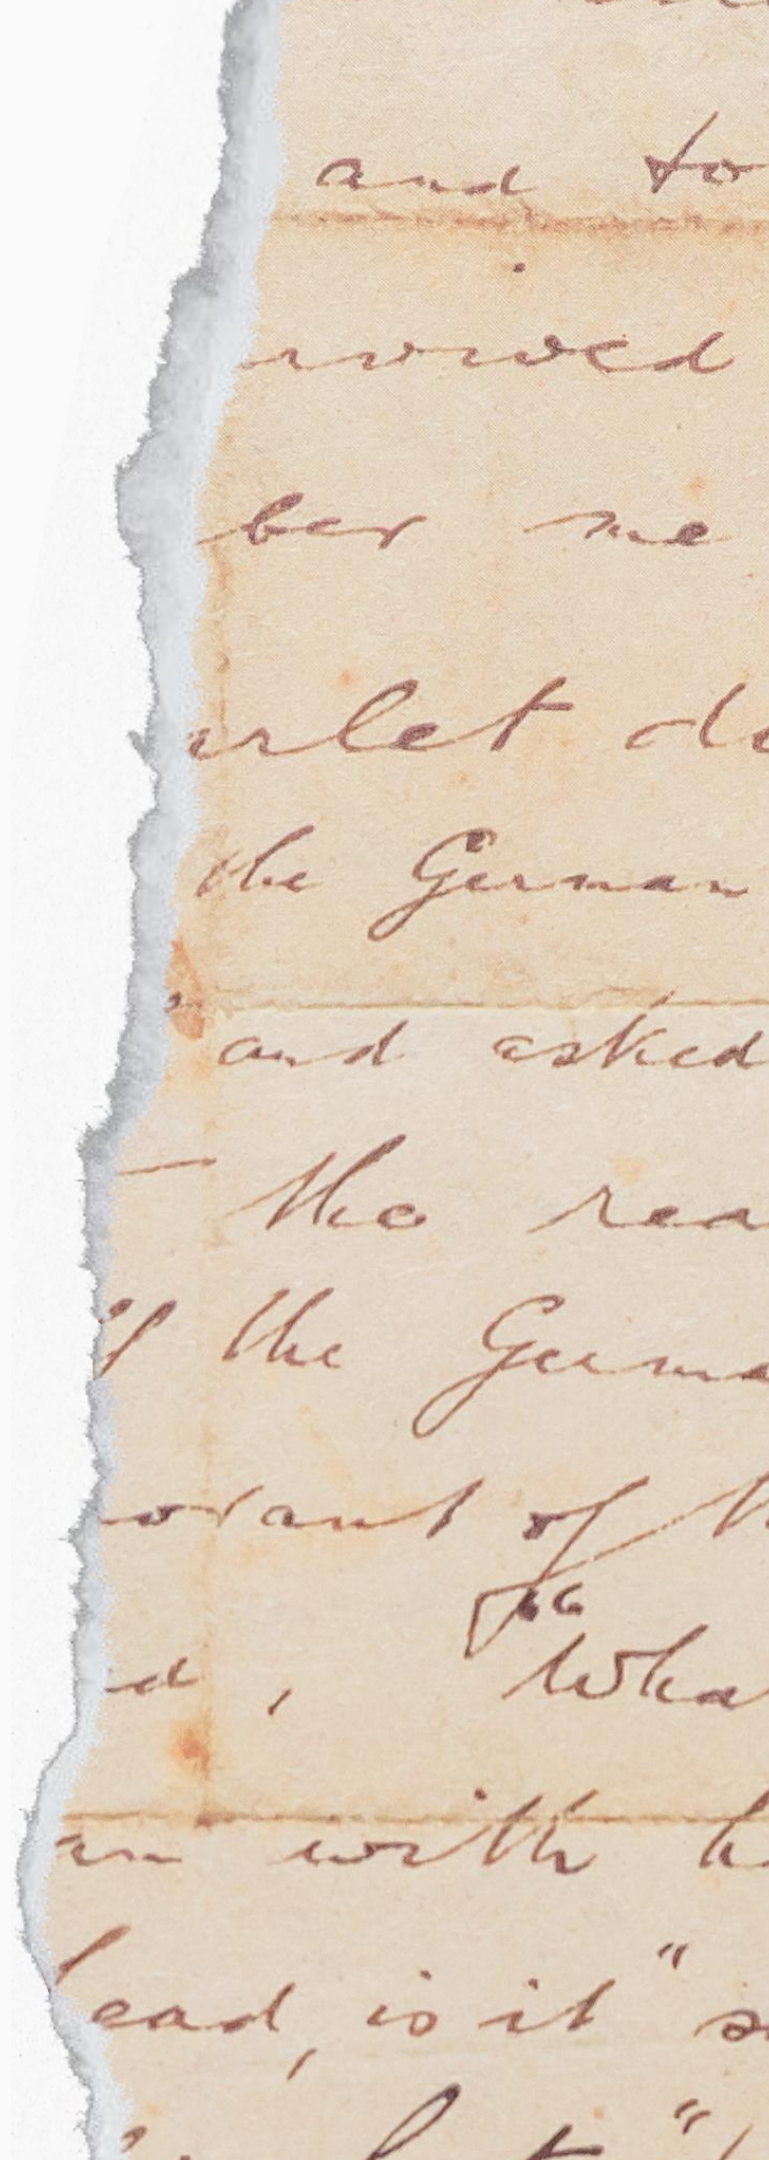 and to
rowed
ber me
arlet de
the German
and asked
the rea
of the Germa
norant of th
d, "Wha
an with h
head, is it" s